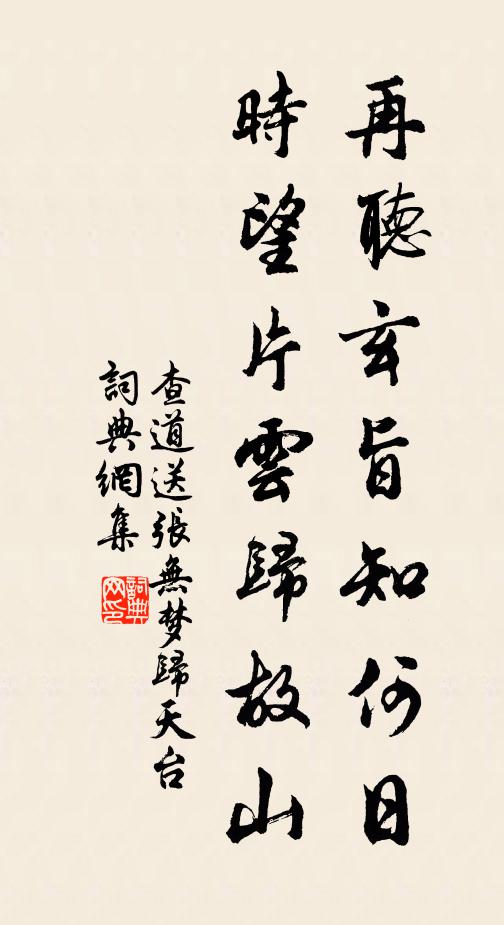 再聽玄旨知何日
時望片雲歸故山
查道送張無梦歸天台
詞典網集
詞典网印